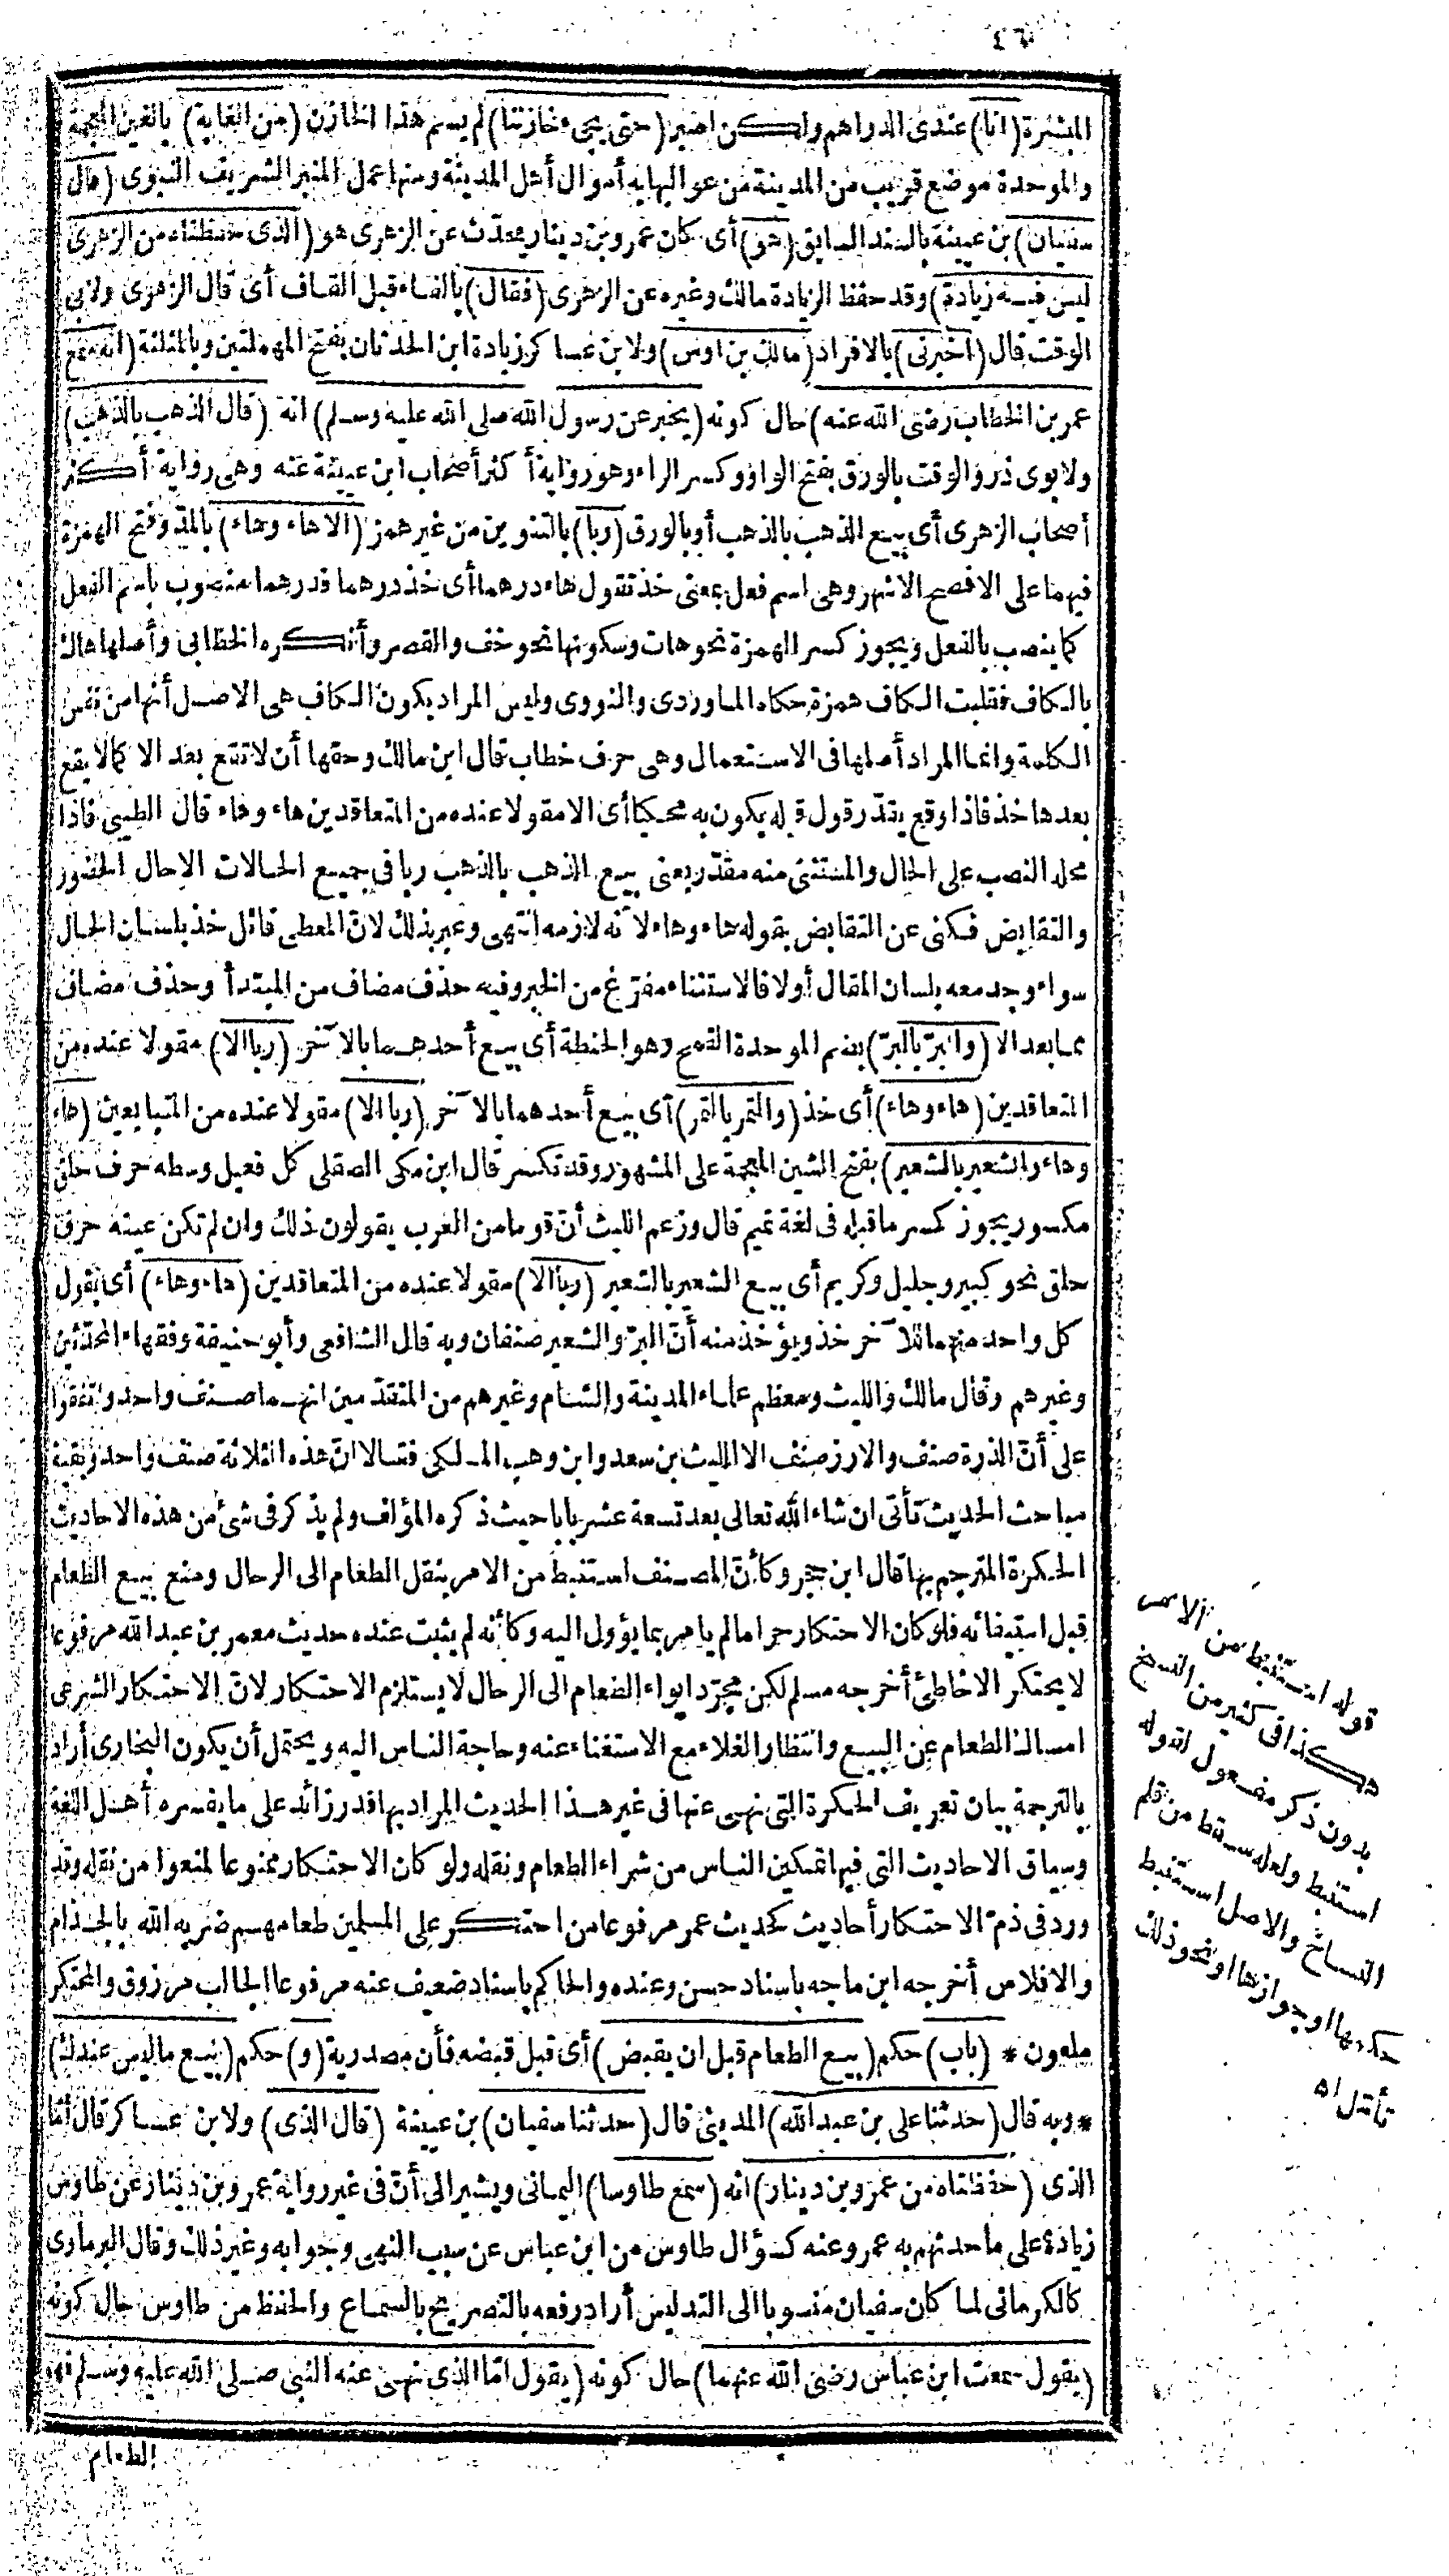 ٤٦
المبشرة (انا) عندى الدراهم ولكن اصبر (حتى يجىء خازننا) لم يسم هذا الخازن (من الغابة) بالغين المعجمة
والموحدة موضع قريب من المدينة من عواليها به أموال أهل المدينة ومنها عمل المنبر الشريف النبوى (قال
سفيان) بن عيينة بالسند السابق (هو) أى كان عمرو بن دينار يحدّث عن الزهرى هو (الذى حفظناه من الزهرى
ليس فيه زيادة) وقد حفظ الزيادة مالك وغيره عن الزهرى (فقال) بالفاء قبل القاف أى قال الزهرى ولابى
الوقت قال (اخبرنى) بالافراد (مالك بن اوس) ولابن عساكر زيادة ابن الحدثان بفتح المهملتين وبالمثلثة (انه سمع
عمر بن الخطاب رضى الله عنه) حال كونه (يخبر عن رسول الله صلى الله عليه وسلم) انه (قال الذهب بالذهب)
ولابوى ذر والوقت بالورق بفتح الواو وكسر الراء وهو رواية أكثر أصحاب ابن عيينة عنه وهى رواية أكثر
أصحاب الزهرى أى بيع الذهب بالذهب أو بالورق (ربا) بالتنوين من غير همز (الا هاء وهاء) بالمدّ وفتح الهمزة
فيهما على الافصح الاشهر وهى اسم فعل بمعنى خذ تقول هاء درهما أى خذ درهما فدرهما منصوب باسم الفعل
كما ينصب بالفعل ويجوز كسر الهمزة نحو هات وسكونها نحو خف والقصر وأنكره الخطابى وأصلها هاك
بالكاف فقلبت الكاف همزة حكاه الماوردى والنووى وليس المراد بكون الكاف هى الاصل أنها من نفس
الكلمة وانما المراد أصلها فى الاستعمال وهى حرف خطاب قال ابن مالك وحقها أن لا تقع بعد الا كما لا يقع
بعدها خذ فاذا وقع يقدّر قول قبله يكون به محكيا أى الا مقولا عنده من المتعاقدين هاء وهاء قال الطيبى فاذا
محله النصب على الحال والمستثنى منه مقدّر يعنى بيع الذهب بالذهب ربا فى جميع الحالات الا حال الحضور
والتقابض فكنى عن التقابض بقوله هاء وهاء لانه لازمه انتهى وعبر بذلك لانّ المعطى قائل خذ بلسان الحال
سواء وجد معه بلسان المقال أولا فالاستثناء مفرّغ من الخبر وفيه حذف مضاف من المبتدأ وحذف مضاف
مما بعد الا (والبرّ بالبرّ) بضم الموحدة القمح وهو الحنطة أى بيع أحدهما بالآخر (ربا الا) مقولا عنده من
المتعاقدين (هاء وهاء) أى خذ (والتمر بالتمر) أى بيع أحدهما بالآخر (ربا الا) مقولا عنده من المتبايعين (هاء
وهاء والشعير بالشعير) بفتح الشين المعجمة على المشهور وقد تكسر قال ابن مكى الصقلى كل فعيل وسطه حرف حلق
مكسور يجوز كسر ما قبله فى لغة تميم قال وزعم الليث أنّ قوما من العرب يقولون ذلك وان لم تكن عينه حرف
حلق نحو كبير وجليل وكريم أى بيع الشعير بالشعير (ربا الا) مقولا عنده من المتعاقدين (هاء وهاء) أى يقول
كل واحد منهما للآخر خذ ويؤخذ منه أنّ البرّ والشعير صنفان وبه قال الشافعى وأبو حنيفة وفقهاء المحدّثين
وغيرهم وقال مالك والليث ومعظم علماء المدينة والشام وغيرهم من المتقدّمين انهما صنف واحد واتفقوا
على أنّ الذرة صنف والارز صنف الا الليث بن سعد وابن وهب المالكى فقالا انّ هذه الثلاثة صنف واحد وبقية
مباحث الحديث تأتى ان شاء الله تعالى بعد تسعة عشر بابا حيث ذكره المؤلف ولم يذكر فى شئ من هذه الاحاديث
الحكرة المترجم بها قال ابن حجر وكأنّ المصنف استنبط من الامر بنقل الطعام الى الرحال ومنع بيع الطعام
قبل استيفائه فلو كان الاحتكار حراما لم يامر بما يؤول اليه وكأنه لم يثبت عنده حديث معمر بن عبد الله مرفوعا
لا يحتكر الا خاطئ أخرجه مسلم لكن مجرّد ايواء الطعام الى الرحال لا يستلزم الاحتكار لانّ الاحتكار الشرعى
امساك الطعام عن البيع وانتظار الغلاء مع الاستغناء عنه وحاجة الناس اليه ويحتمل أن يكون البخارى أراد
بالترجمة بيان تعريف الحكرة التى نهى عنها فى غير هذا الحديث المراد بها قدر زائد على ما يفسره أهل اللغة
وسياق الاحاديث التى فيها تمكين الناس من شراء الطعام ونقله ولو كان الاحتكار ممنوعا لمنعوا من نقله وقد
ورد فى ذمّ الاحتكار أحاديث كحديث عمر مرفوعا من احتكر على المسلمين طعامهم ضربه الله بالجذام
والافلاس أخرجه ابن ماجه باسناد حسن وعنده والحاكم باسناد ضعيف عنه مرفوعا الجالب مرزوق والمحتكر
ملعون * (باب) حكم (بيع الطعام قبل ان يقبض) أى قبل قبضه فأن مصدرية (و) حكم (بيع ما ليس عندك)
* وبه قال (حدثنا على بن عبد الله) المدينى قال (حدثنا سفيان) بن عيينة (قال الذى) ولابن عساكر قال أمّا
الذى (حفظناه من عمرو بن دينار) انه (سمع طاوسا) اليمانى ويشير الى أنّ فى غير رواية عمرو بن دينار عن طاوس
زيادة على ما حدثهم به عمرو عنه كسؤال طاوس من ابن عباس عن سبب النهى وجوابه وغير ذلك وقال البرماوى
كالكرمانى لما كان سفيان منسوبا الى التدليس أراد رفعه بالتصريح بالسماع والحفظ من طاوس حال كونه
(يقول سمعت ابن عباس رضى الله عنهما) حال كونه (يقول امّا الذى نهى عنه النبى صلى الله عليه وسلم فهو
الطعام
قوله استنبط من الامر
هكذا فى كثير من النسخ
بدون ذكر مفعول لقوله
استنبط ولعله سقط من قلم
النساخ والاصل استنبط
حكمها او جوازها او نحو ذلك
تأمّل اه